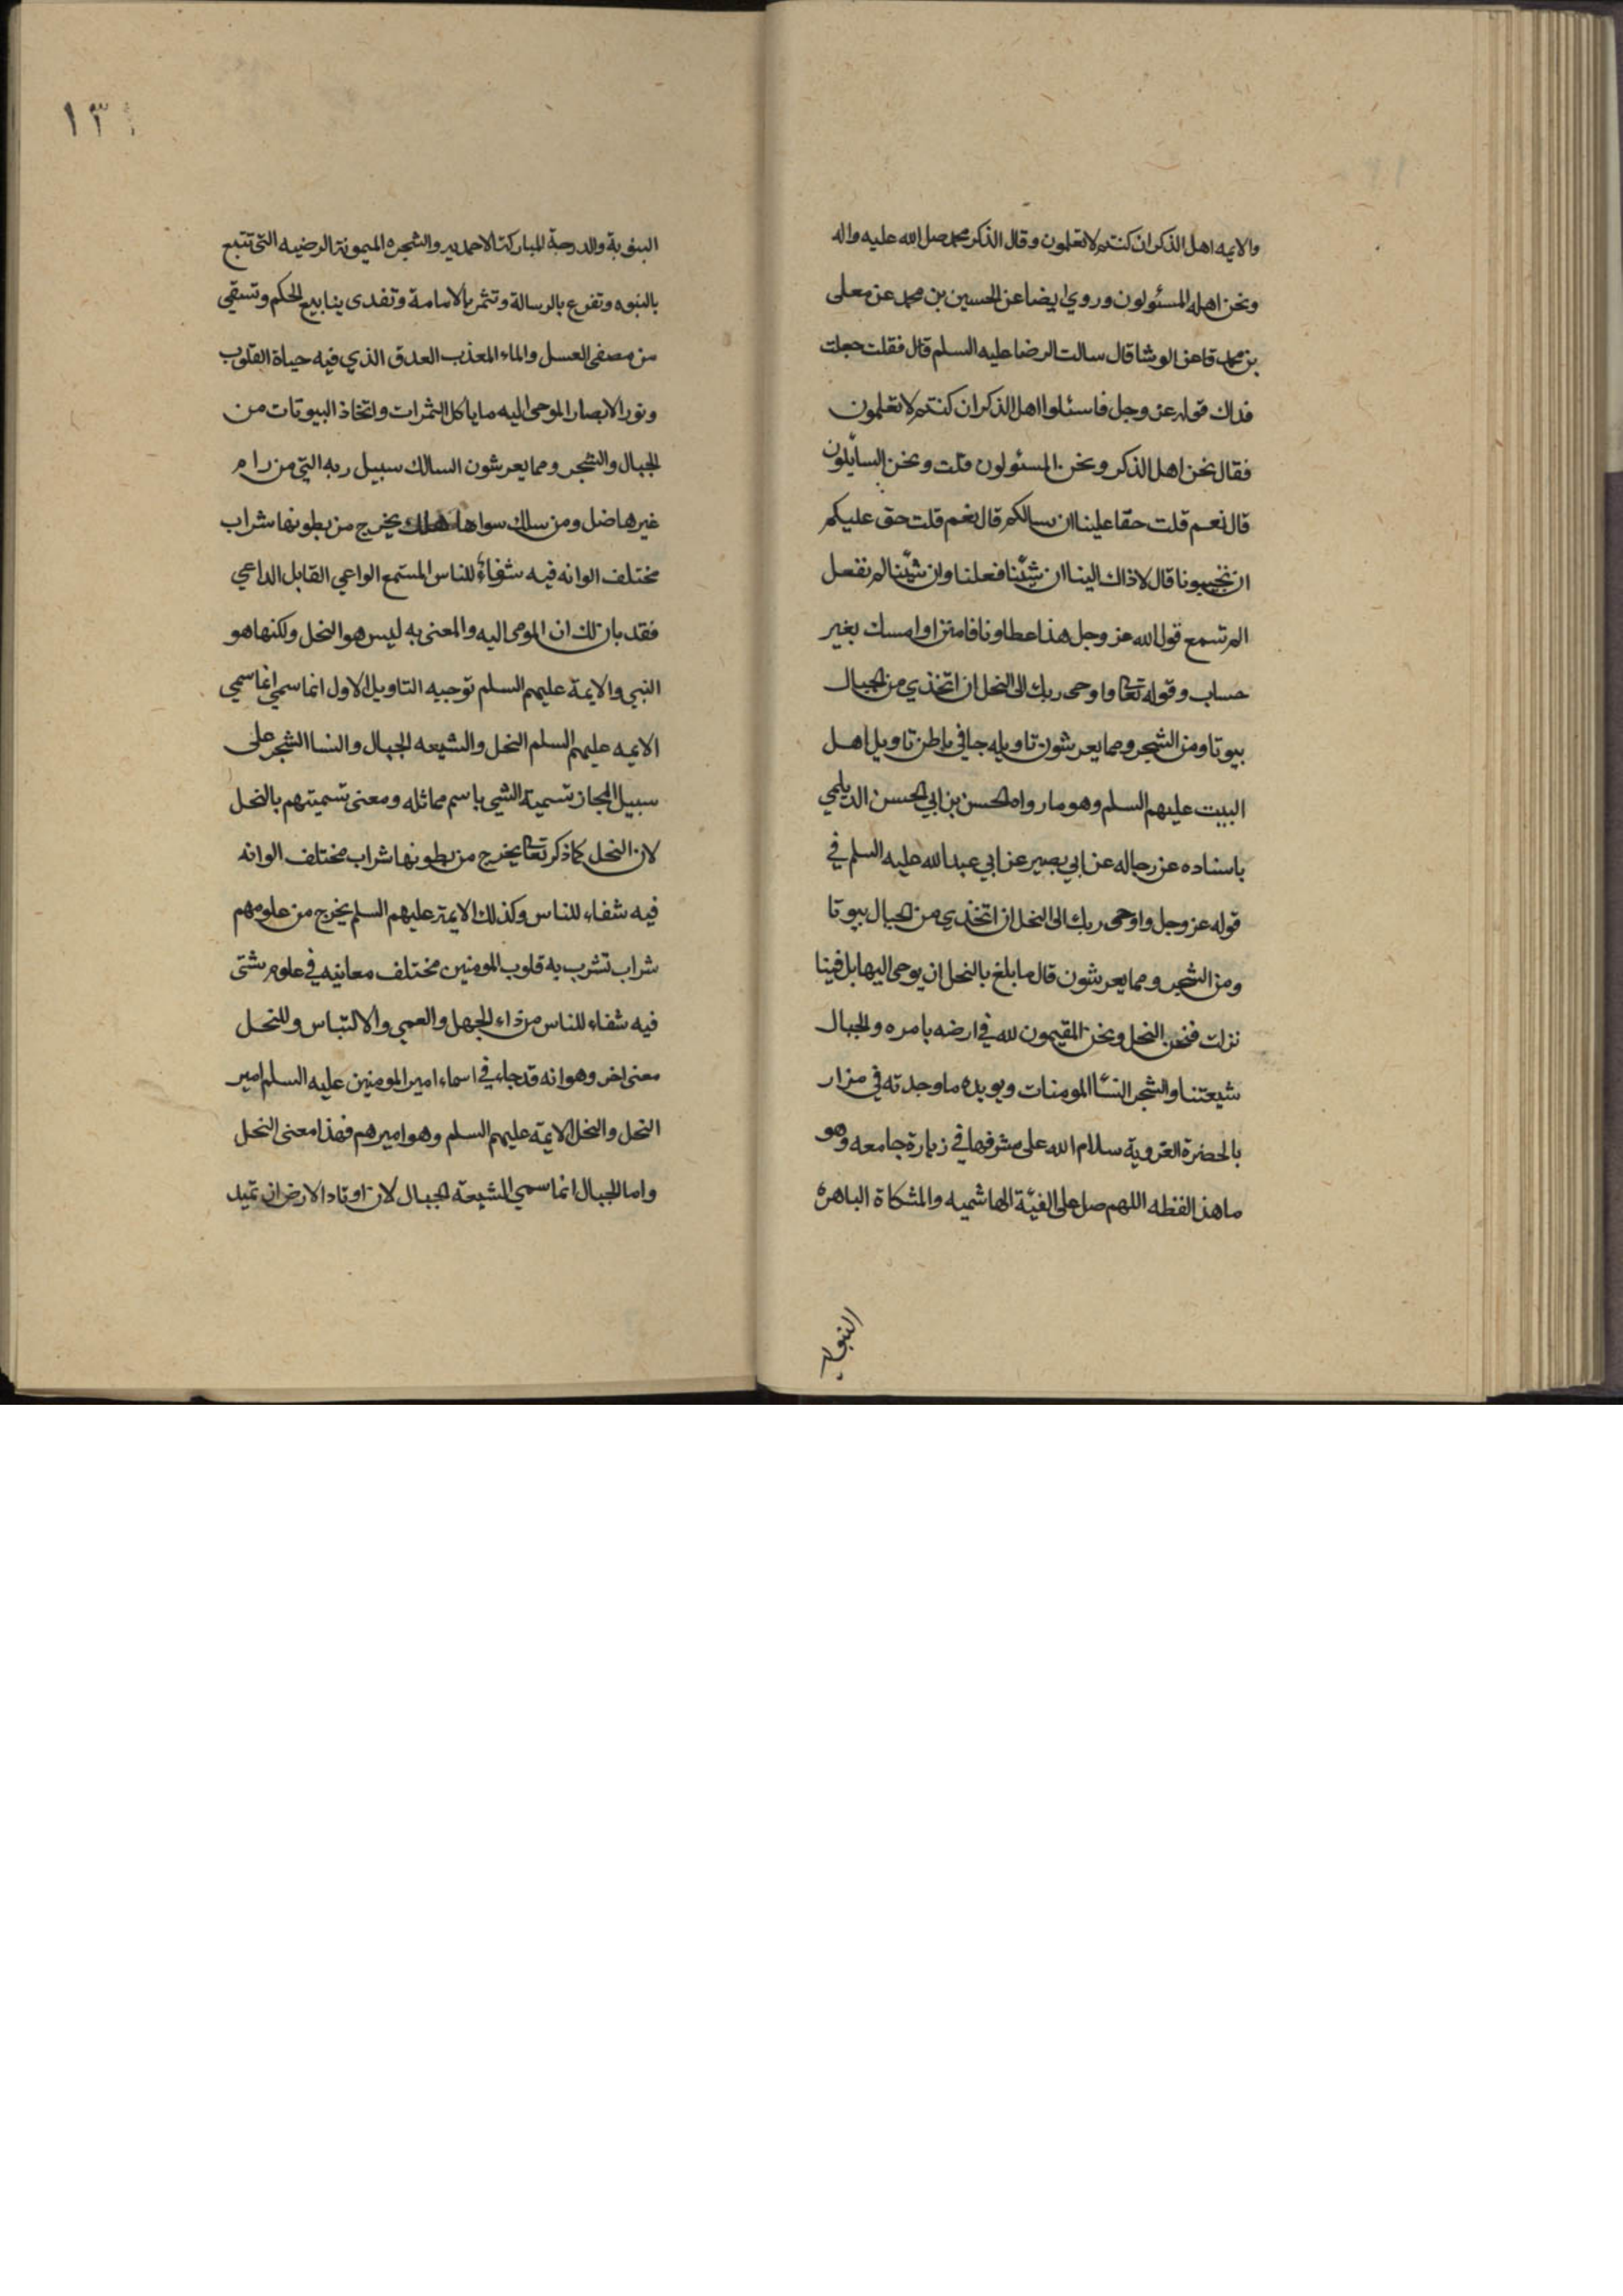 والايمه اهل الذكر ان كنتم لا تعلمون وقال الذكر محمد صلى الله عليه واله
ونحن اهله المسئولون وروي ايضا عن الحسين بن محمد عن معلى
بن محمد قا عن الوشا قال سالت الرضا عليه السلم قال فقلت جعلت
فداك قوله عز وجل فاسئلوا اهل الذكر ان كنتم لا تعلمون
فقال نحن اهل الذكر ونحن المسئولون قلت ونحن السايلون
قال نعم قلت حقا علينا ان نسالكم قال نعم قلت حق عليكم
ان تجيبونا قال لا ذاك الينا ان شئنا فعلنا وان شئنا لم نفعل
الم تسمع قول الله عز وجل هذا عطاونا فامنن او امسك بغير
حساب وقوله تعا واوحى ربك الى النحل ان اتخذي من الجبال
بيوتا ومن الشجر ومما يعرشون تاويله جا في باطن تاويل اهل
البيت عليهم السلم وهو ما رواه الحسن بن ابي الحسن الديلمي
باسناده عن رجاله عن ابي بصير عن ابي عبد الله عليه السلم في
قوله عز وجل واوحى ربك الى النحل ان اتخذي من الجبال بيوتا
ومن الشجر ومما يعرشون قال ما بلغ بالنحل ان يوحى اليها بل فينا
نزلت فنحن النحل ونحن المقيمون لله في ارضه بامره والجبال
شيعتنا والشجر النسا المومنات ويويده ما وجدته في مزار
بالحضرة الغروية سلام الله على مشرفها في زيارة جامعه وهو
ما هذا لفظه اللهم صل على الفئة الهاشميه والمشكاة الباهرة
النبويه
١٣٤
النبوية والدرحة المباركة الاحمديه والشجره الميمونة الرضيه التي تتبع
بالنبوه وتفرع بالرسالة وتثمر بالامامة وتغدى ينابيع الحكم وتسقي
من مصفى العسل والماء العذب الغدق الذي فيه حياة القلوب
ونور الابصار الموحى اليه ما ياكل الثمرات واتخاذ البيوتات من
الجبال والشجر ومما يعرشون السالك سبيل ربه التي من رام
غيرها ضل ومن سلك سواها هلك يخرج من بطونها شراب
مختلف الوانه فيه شفاء للناس المستمع الواعي القايل الداعي
فقد بان لك ان الموحى اليه والمعنى به ليس هو النحل ولكنها هو
النبي والايمة عليهم السلم توجيه التاويل الاول انما سمي انما سمي
الايمه عليهم السلم النحل والشيعه الجبال والنسا الشجر على
سبيل المجاز تسمية الشي باسم مماثله ومعنى تسميتهم بالنحل
لان النحل كما ذكر تعا يخرج من بطونها شراب مختلف الوانه
فيه شفاء للناس وكذلك الايمة عليهم السلم يخرج من علومهم
شراب تشرب به قلوب المومنين مختلف معانيه في علوم شتى
فيه شفاء للناس من داء الجهل والعمي والالتباس وللنحل
معنى اخر وهو انه قد جاء في اسماء امير المومنين عليه السلم امير
النحل والنحل الايمة عليهم السلم وهو اميرهم فهذا معنى النحل
واما الجبال انما سمي الشيعة الجبال لان اوتاد الارض ان تميد